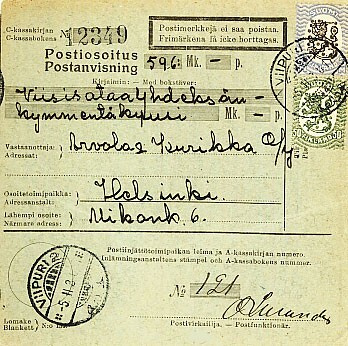 C-kassakirjan
C-kassabokens № 12349
Postimerkkejä ei saa poistaa.
Frimärkena få icke borttagas.
SUOMI
Postiosoitus
Postanvisning 596: Mk. — p.
Kirjaimin: — Med bokstäver:
Viisisataayhdeksän-
kymmentäkuusi Mk. — p.
Vastaanottaja:
Adressat: Arvolas Kurikka O/y
Osoitetoimipaikka:
Adressanstalt: Helsinki.
Lähempi osoite:
Närmare adress: Mikonk. 6.
VIIPURI
MARKKAA
Postiinjättötoimipaikan leima ja A-kassakirjan numero.
Inlämningsanstaltens stämpel och A-kassabokens nummer.
VIIPURI
№ 121
Lomake
Blankett N:o
Postivirkailija. — Postfunktionär.